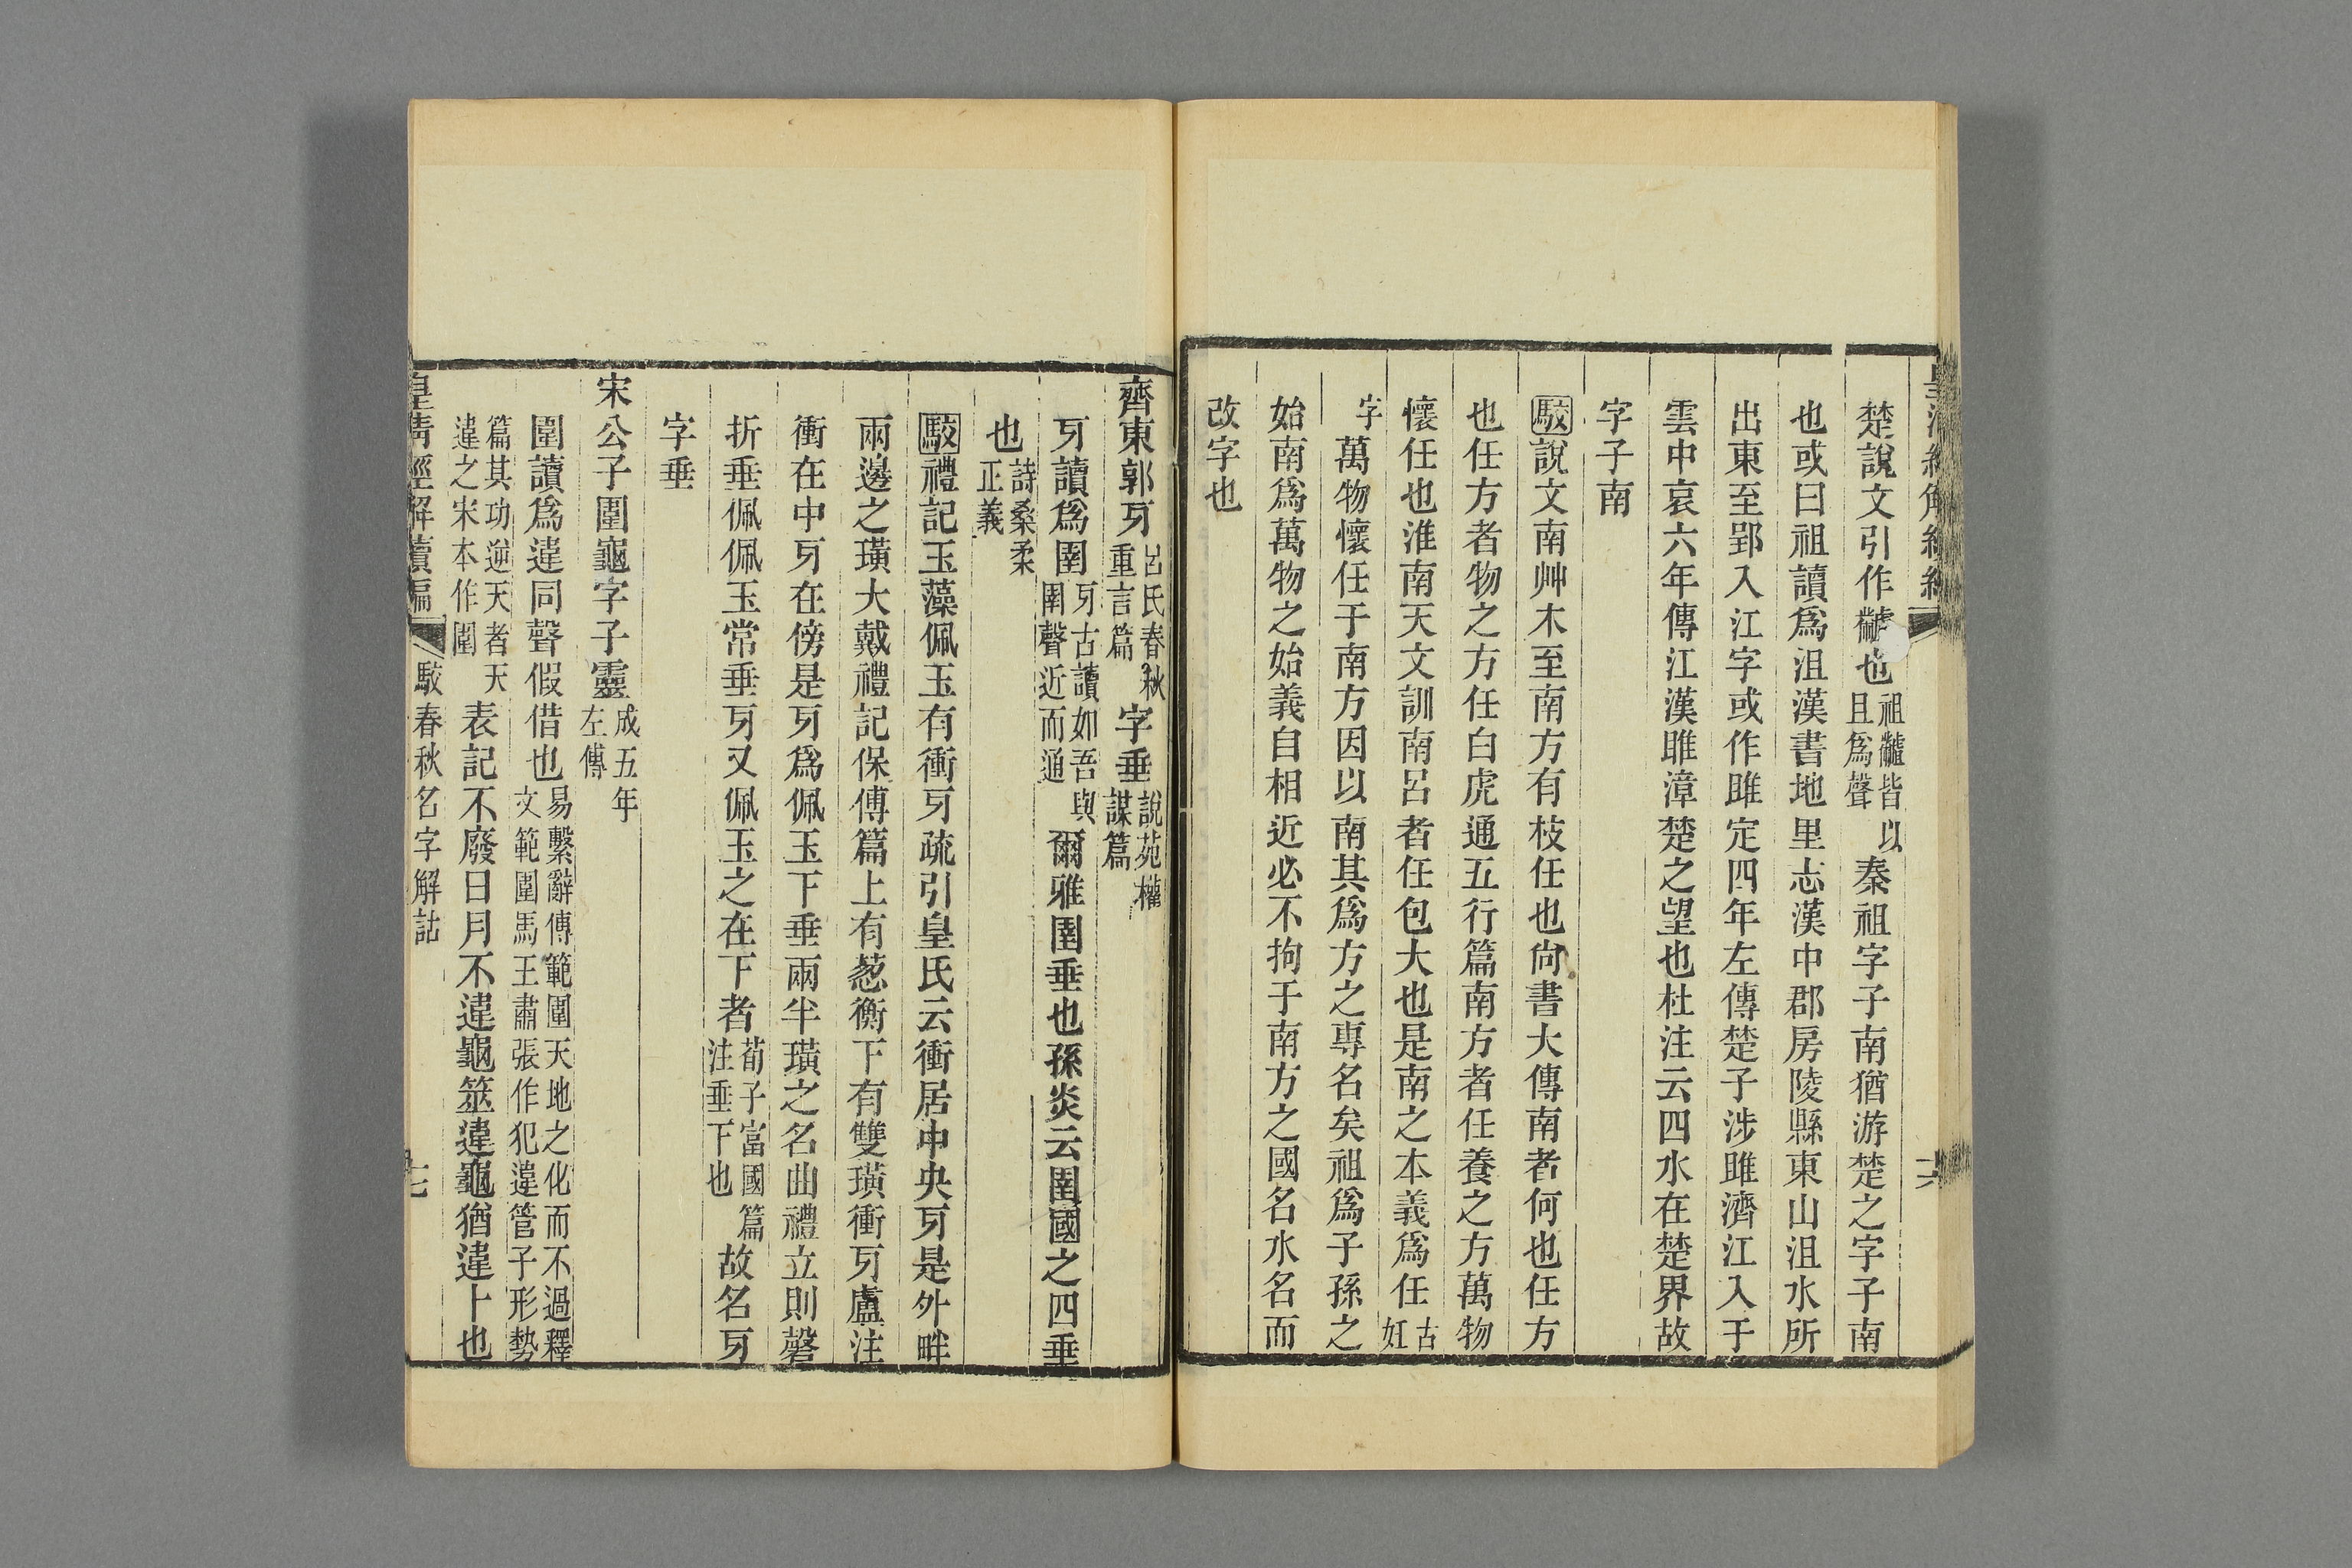 皇清經解續編 十六
楚說文引作𪓐也祖𪓐皆以且爲聲秦祖字子南猶游楚之字子南
也或曰祖讀爲沮漢書地里志漢中郡房陵縣東山沮水所
出東至郢入江字或作雎定四年左傳楚子涉雎濟江入于
雲中哀六年傳江漢雎漳楚之望也杜注云四水在楚界故
字子南
駮說文南艸木至南方有枝任也尙書大傳南者何也任方
也任方者物之方任白虎通五行篇南方者任養之方萬物
懷任也淮南天文訓南呂者任包大也是南之本義爲任古妊
字萬物懷任于南方因以南其爲方之專名矣祖爲子孫之
始南爲萬物之始義自相近必不拘于南方之國名水名而
改字也
齊東郭牙呂氏春秋重言篇字垂說苑權謀篇
牙讀爲圉牙古讀如吾與圉聲近而通爾雅圉垂也孫炎云圉國之四垂
也詩桑柔正義
駮禮記玉藻佩玉有衝牙疏引皇氏云衝居中央牙是外畔
兩邊之璜大戴禮記保傅篇上有葱衡下有雙璜衝牙盧注
衝在中牙在傍是牙爲佩玉下垂兩半璜之名曲禮立則磬
折垂佩佩玉常垂牙又佩玉之在下者荀子富國篇注垂下也故名牙
字垂
宋公子圍龜字子靈成五年左傳
圍讀爲違同聲假借也易繫辭傳範圍天地之化而不過釋文範圍馬王肅張作犯違管子形勢
篇其功逆天者天違之宋本作圍表記不廢日月不違龜筮違龜猶違卜也
皇清經解續編 駮春秋名字解詁 十七